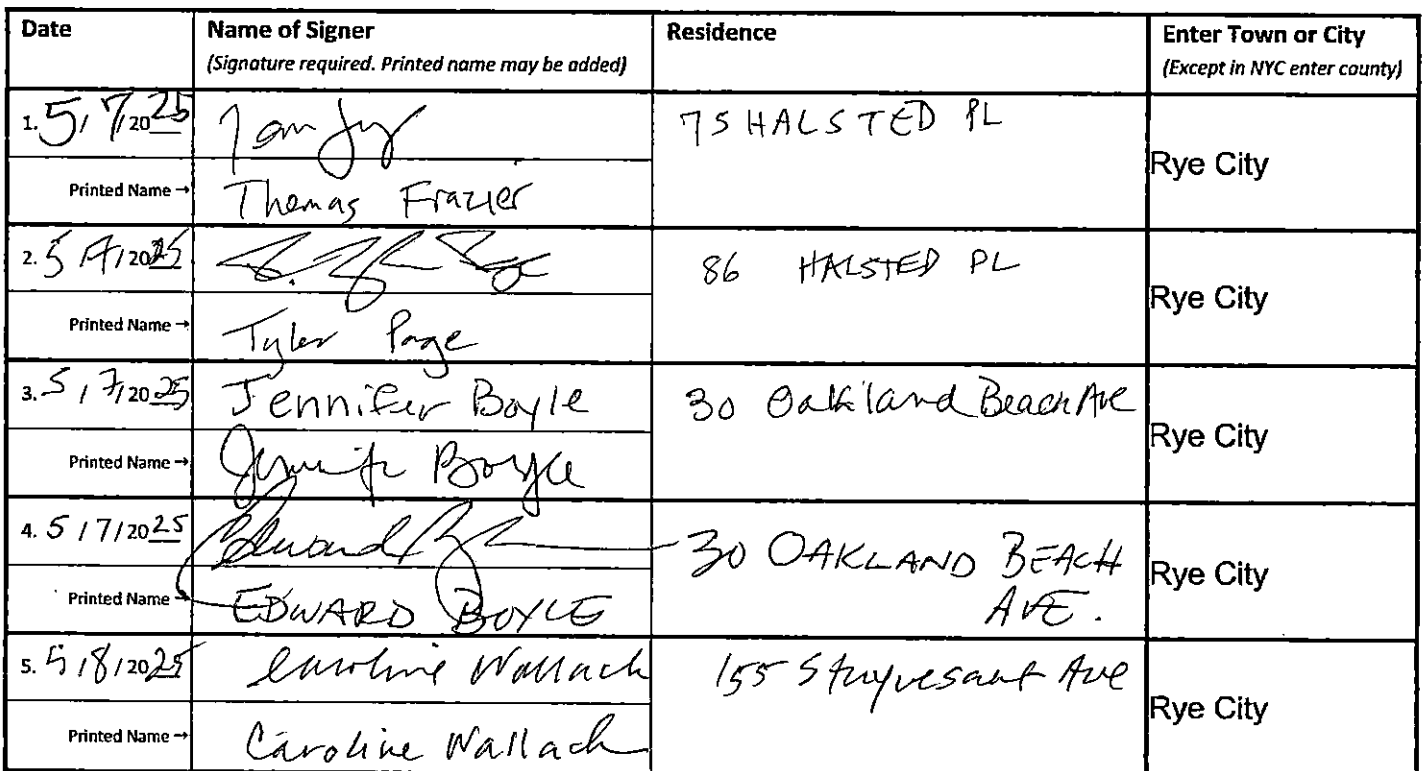 Date Name of Signer Residence Enter Town or City
(Signature required. Printed name may be added) (Except in NYC enter county)
1. 5/7/2025 75 HALSTED PL
Rye City
Printed Name → Thomas Frazier
2. 5/7/2025 86 HALSTED PL
Rye City
Printed Name → Tyler Page
3. 5/7/2025 Jennifer Boyle 30 Oakland Beach Ave
Rye City
Printed Name → Jennifer Boyle
4. 5/7/2025 Edward 30 OAKLAND BEACH
AVE.
Rye City
Printed Name → EDWARD BOYLE
5. 5/8/2025 Caroline Wallach 155 Stuyvesant Ave
Rye City
Printed Name → Caroline Wallach